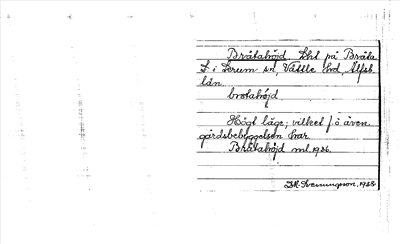 Bråtahöjd. Lht på Bråta
L. i Lerum sn, Vättle hd, Älfsb.
län.
brotahöjd
Högt läge; vilket f. ö även
gårdsbebyggelsen har.
Bråtahöjd ml. 1936.
Svenungsson. 1938